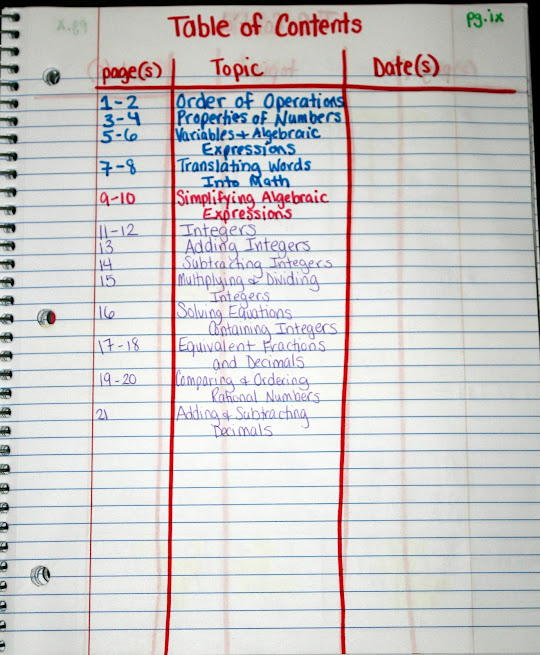 Table of Contents
pg.ix
page(s) Topic Date(s)
1-2 Order of Operations
3-4 Properties of Numbers
5-6 Variables + Algebraic
Expressions
7-8 Translating Words
Into Math
9-10 Simplifying Algebraic
Expressions
11-12 Integers
13 Adding Integers
14 Subtracting Integers
15 Multiplying & Dividing
Integers
16 Solving Equations
Containing Integers
17-18 Equivalent Fractions
and Decimals
19-20 Comparing & Ordering
Rational Numbers
21 Adding & Subtracting
Decimals